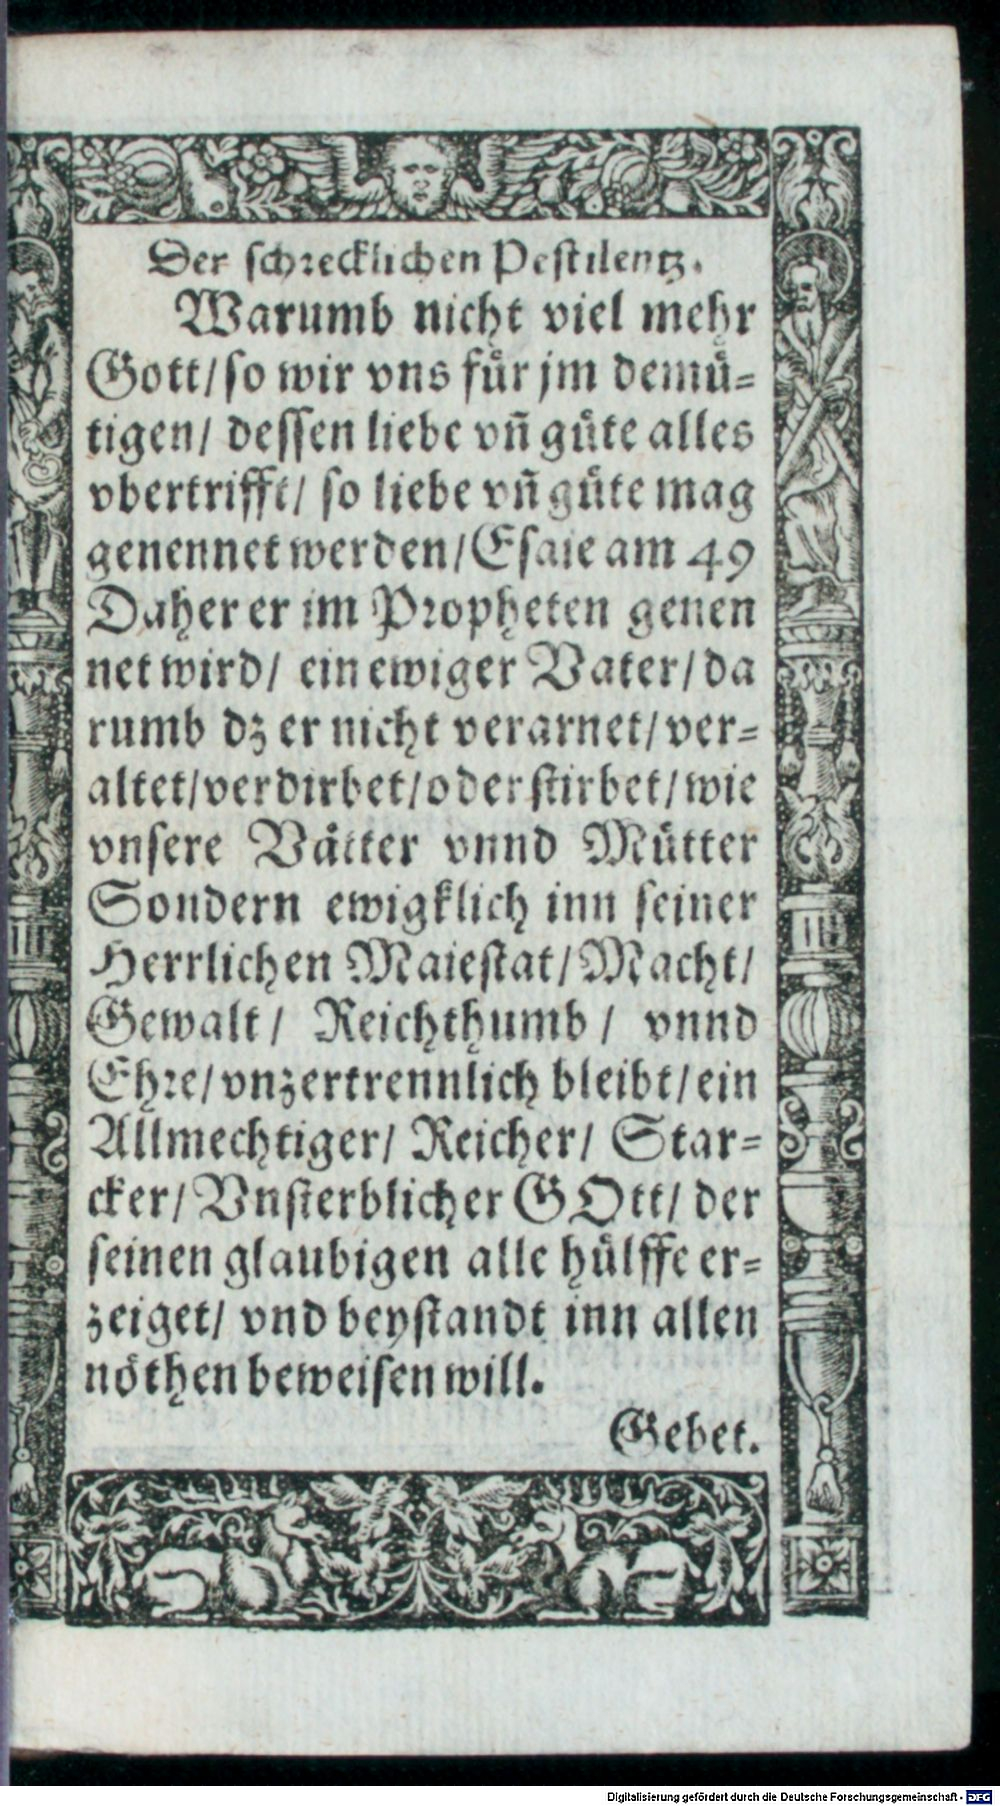 Der schrecklichen Pestilentz.
Warumb nicht viel mehr
Gott/ so wir vns fuͤr jm demuͤ-
tigen/ dessen liebe vñ guͤte alles
vbertrifft/ so liebe vñ guͤte mag
genennet werden/ Esaie am 49
Daher er im Propheten genen
net wird/ ein ewiger Vater/ da
rumb dz er nicht verarnet/ ver-
altet/ verdirbet/ oder stirbet/ wie
vnsere Vaͤtter vnnd Muͤtter
Sondern ewigklich inn seiner
Herrlichen Maiestat/ Macht/
Gewalt/ Reichthumb/ vnnd
Ehre/ vnzertrennlich bleibt/ ein
Allmechtiger/ Reicher/ Star-
cker/ Vnsterblicher GOtt/ der
seinen glaubigen alle huͤlffe er-
zeiget/ vnd beystandt inn allen
noͤthen beweisen will.
Gebet.
Digitalisierung gefördert durch die Deutsche Forschungsgemeinschaft - DFG